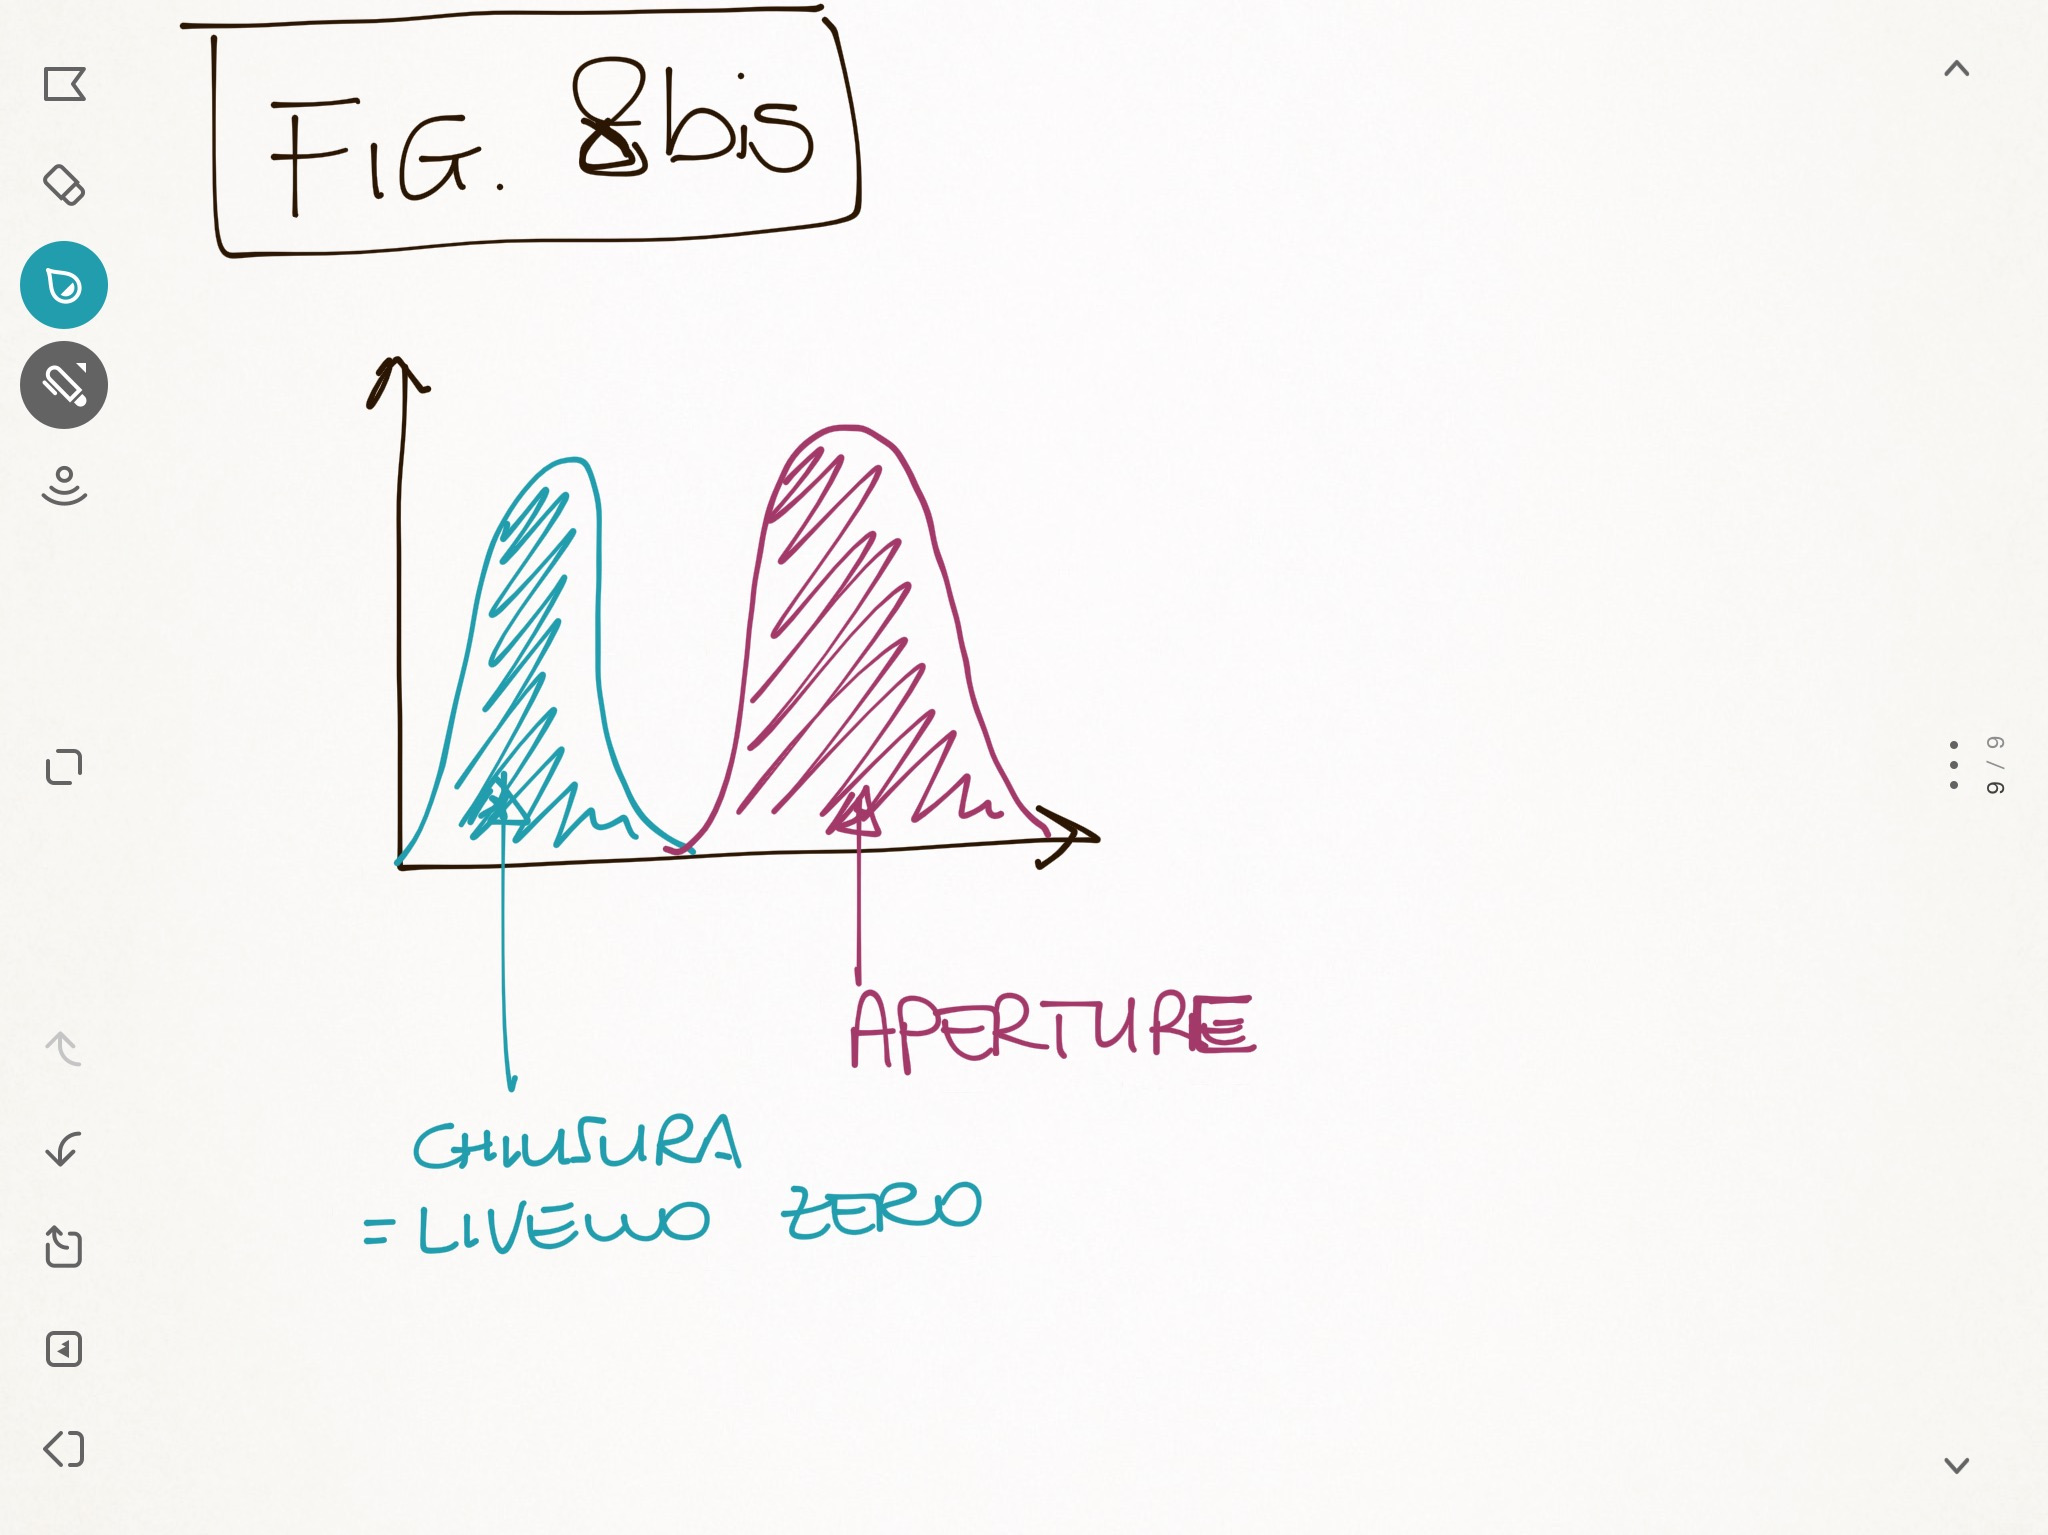 FIG. 8bis
APERTURE
CHIUSURA
= LIVELLO ZERO
6 / 6